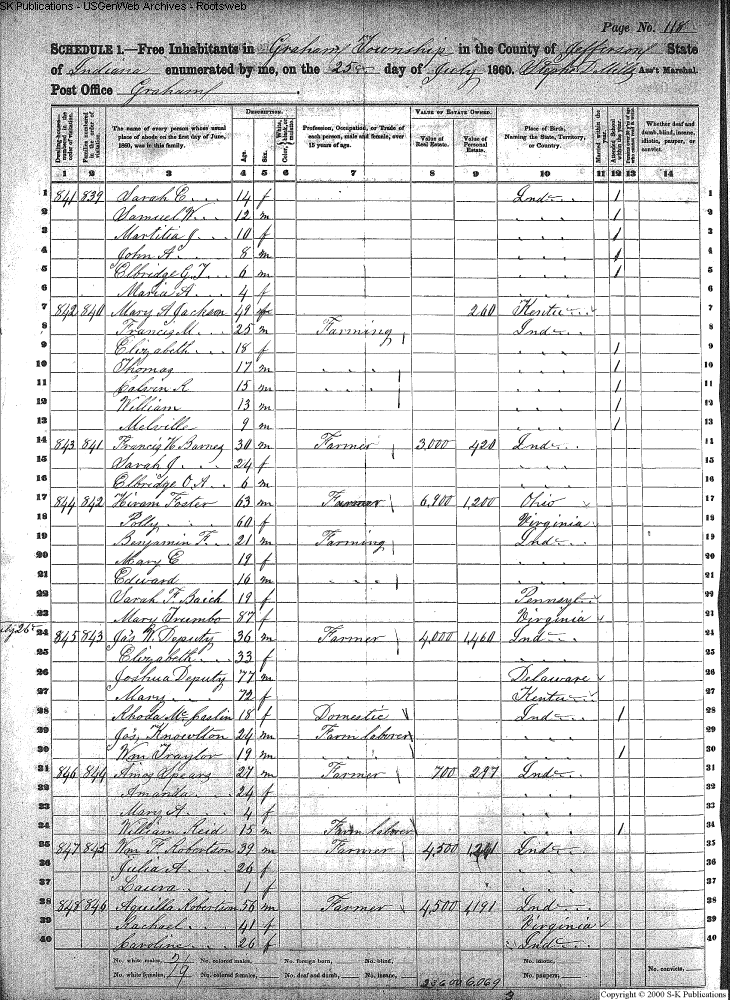 SK Publications - USGenWeb Archives - Rootsweb
Page No. 118
SCHEDULE 1.—Free Inhabitants in Graham Township in the County of Jefferson State
of Indiana enumerated by me, on the 25 day of July 1860. Ass't Marshal.
Post Office Graham
DESCRIPTION. VALUE OF ESTATE OWNED.
Dwelling-houses—numbered in the order of visitation. Families numbered in the order of visitation. The name of every person whose usual place of abode on the first day of June, 1860, was in this family. Age. Sex. Color, White, black, or mulatto. Profession, Occupation, or Trade of each person, male and female, over 15 years of age. Value of Real Estate. Value of Personal Estate. Place of Birth, Naming the State, Territory, or Country. Married within the year. Attended School within the year. Whether deaf and dumb, blind, insane, idiotic, pauper, or convict.
1 2 3 4 5 6 7 8 9 10 11 12 13 14
1 841 839 Sarah E. 14 f Ind / 1
2 Samuel W. 12 m / 2
3 Martitia J. 10 f / 3
4 John A. 8 m / 4
5 Elbridge G. T. 6 m / 5
6 Maria A. 4 f 6
7 842 840 Mary A Jackson 49 f 260 Kentu 7
8 Francis M. 25 m Farming Ind 8
9 Elizabeth 18 f / 9
10 Thomas 17 m / 10
11 Calvin R 15 m / 11
12 William 13 m / 12
13 Melville 9 m / 13
14 843 841 Francis H Barnes 30 m Farmer 3,000 420 Ind
15 Sarah J. 24 f 15
16 Elbridge O. A. 6 m 16
17 844 842 Hiram Foster 63 m Farmer 6,900 1,200 Ohio
18 Polly 60 f Virginia
19 Benjamin F. 21 m Farming Ind
20 Mary E 19 f
21 Edward 16 m
22 Sarah F Baich 19 f Pennsyl
23 Mary Trumbo 87 f Virginia
24 845 843 Jas W. Deputy 36 m Farmer 4,000 1,460 Ind
25 Elizabeth 33 f
26 Joshua Deputy 77 m Delaware
27 Mary 72 f Kentu
28 Rhoda McCaslin 18 f Domestic Ind /
29 Jas, Knowlton 24 m Farm laborer
30 Wm Traylor 19 m /
31 846 844 Amos Spears 27 m Farmer 700 297 Ind
32 Amanda 24 f
33 Mary A 4 f
34 William Reid 15 m Farm laborer /
35 847 845 Wm F. Robertson 39 m Farmer 4,500 Ind
36 Julia A. 26 f
37 Laura 1 f
38 848 846 Aquilla Robertson 56 m Farmer 4,500 1191 Ind
39 Rachael 41 f Virginia
40 Caroline 26 f Ind
No. white males, 21 No. colored males, No. foreign born, No. blind, No. idiotic,
No. white females, 19 No. colored females, No. deaf and dumb, No. insane, 23600 6,069 No. paupers, No. convicts,
Copyright © 2000 S-K Publications